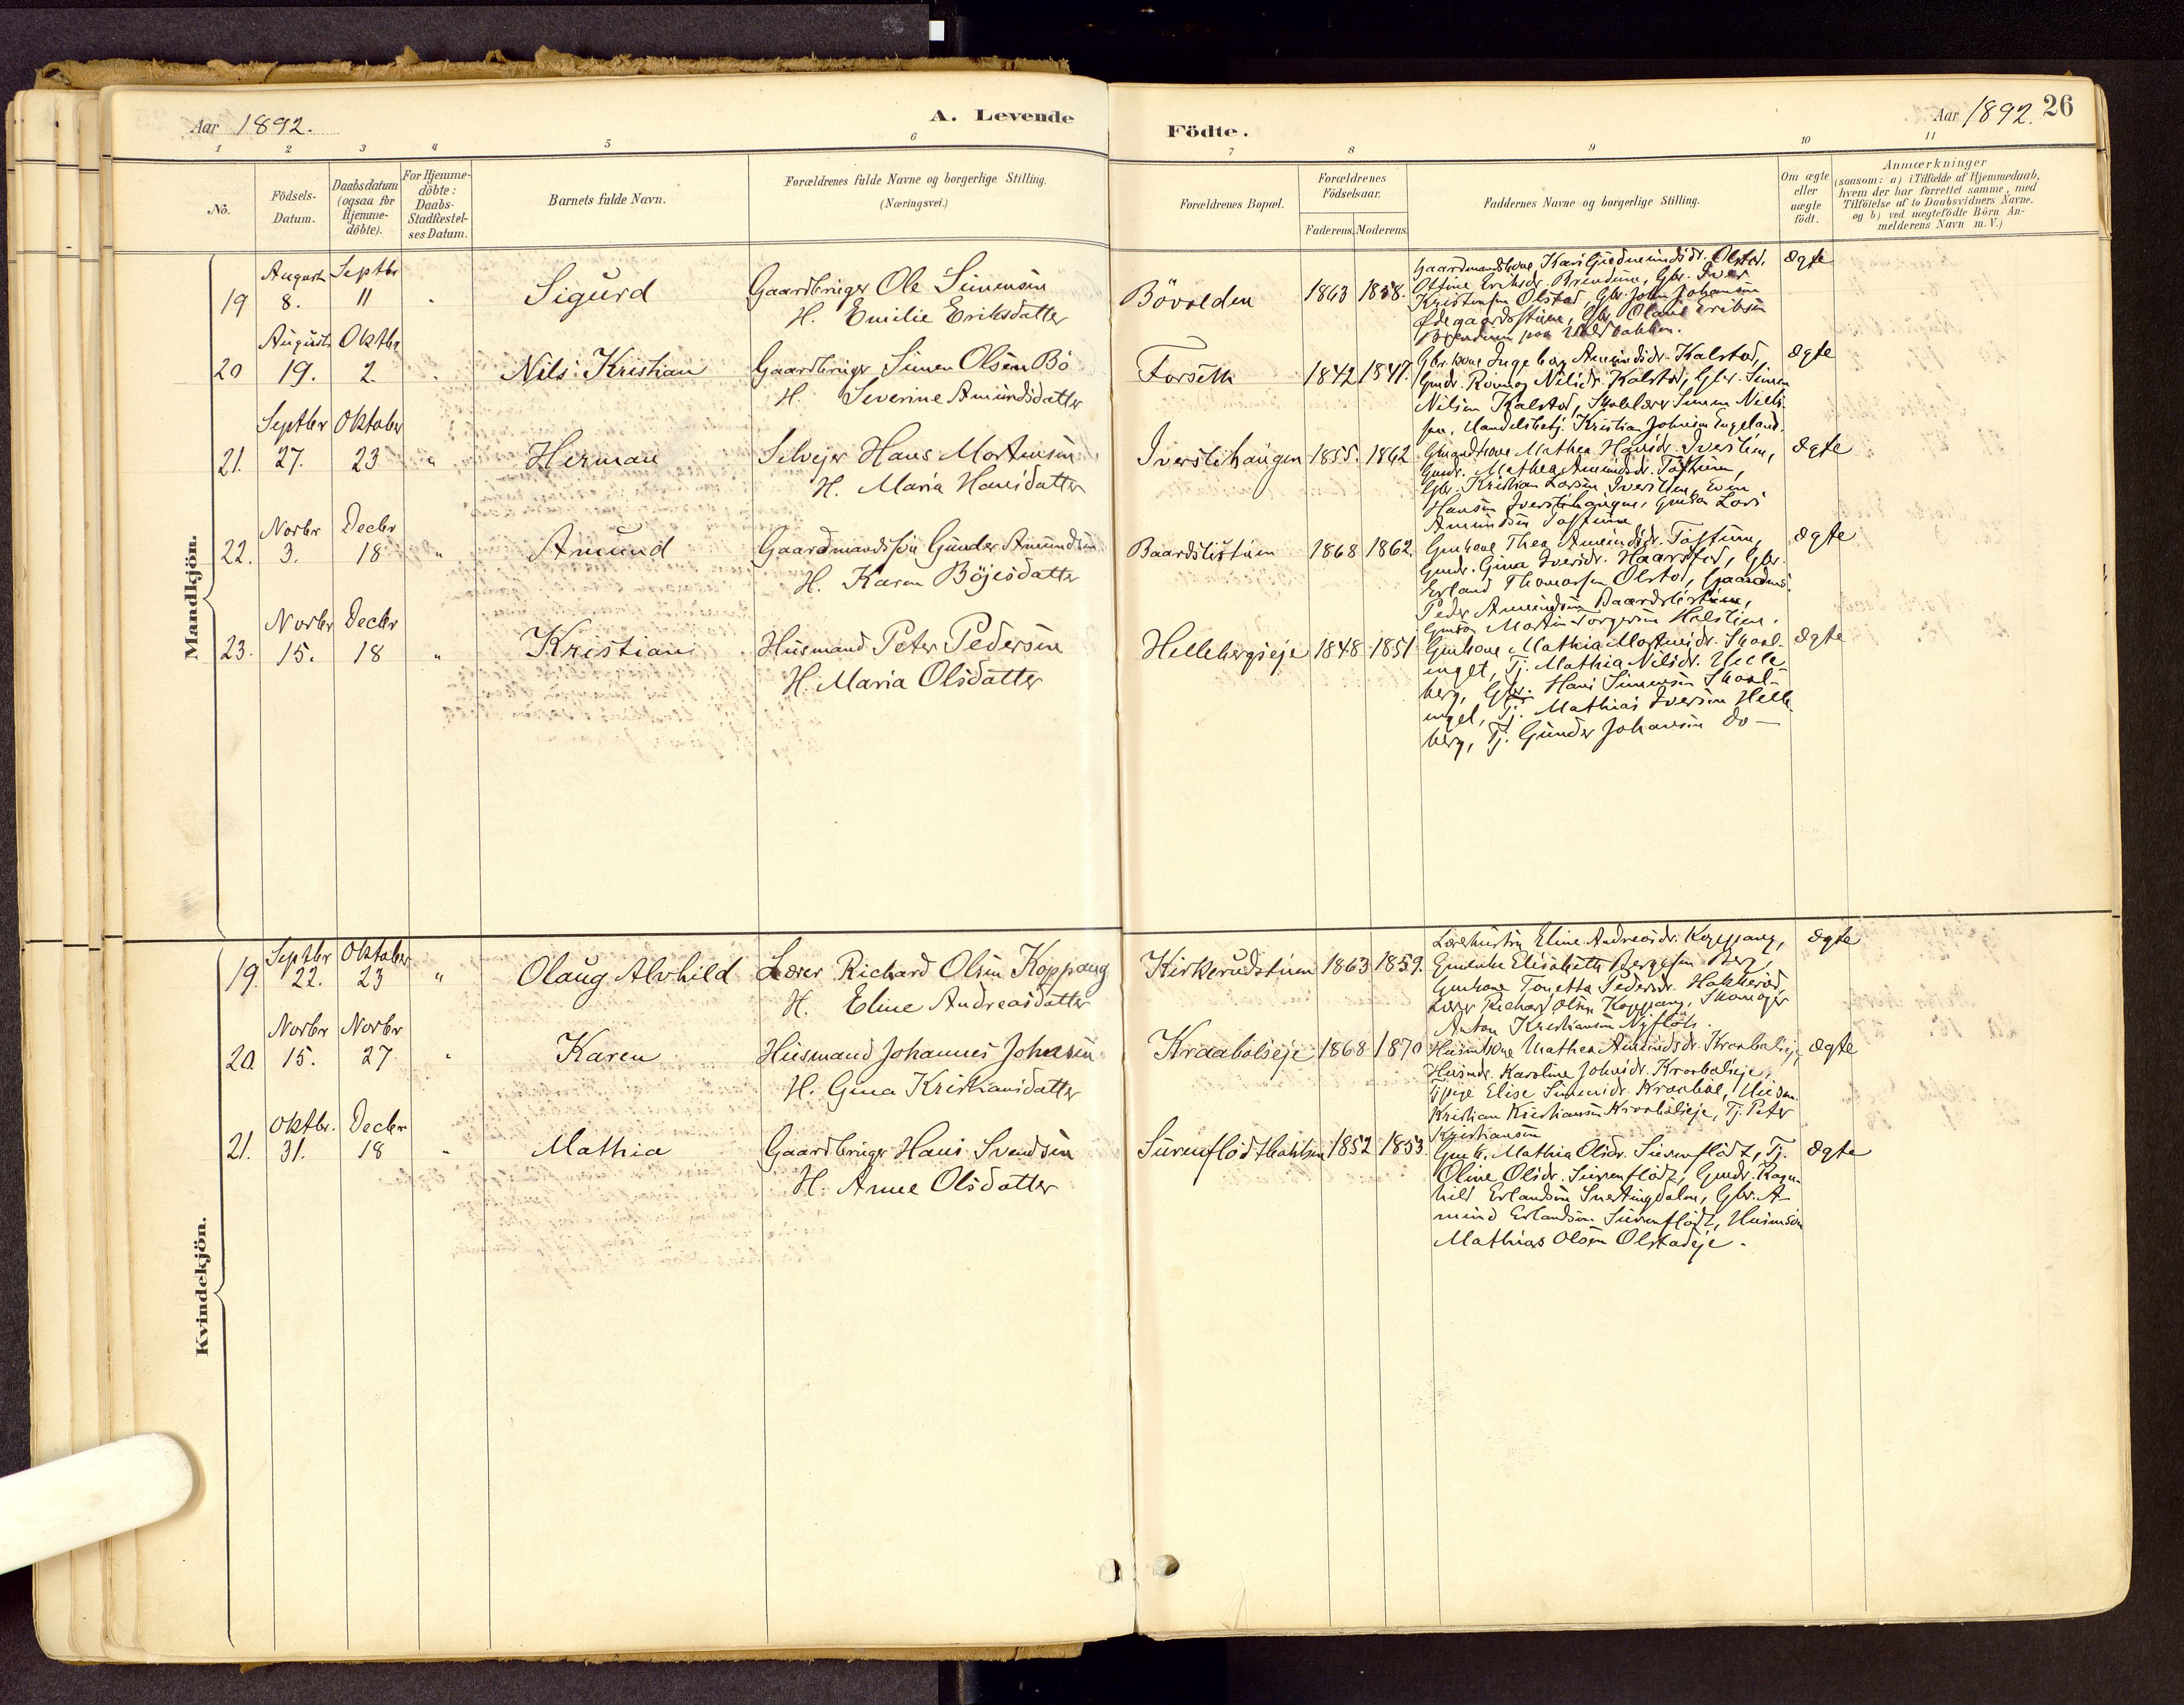 Aar 1892.
A. Levende
Födte.
Aar 1892. 26
1 2 3 4 5 6 7 8 9 10 11
No.
Födsels-
Datum.
Daabsdatum
(ogsaa for
Hjemme-
döbte).
For Hjemme-
döbte:
Daabs-
Stadfæstel-
ses Datum.
Barnets fulde Navn.
Forældrenes fulde Navne og borgerlige Stilling.
(Næringsvei.)
Forældrenes Bopæl.
Forældrenes
Födselsaar.
Faderens. Moderens.
Faddernes Navne og borgerlige Stilling.
Om ægte
eller
uægte
födt.
Anmærkninger
(saasom: a) i Tilfælde af Hjemmedaab,
hvem der har forrettet samme, med
Tilföielse af to Daabsvidners Navne.
og b) ved uægtefödte Börn An-
melderens Navn m. V.)
Mandkjön.
August Septbr
19 8. 11 Sigurd Gaardbruger Ole Simensen
H. Emilie Eriksdatter
Bövolden 1863 1858.
Ægte
August Oktbr
20 19. 2. Nils Kristian Gaardbruger Simen Olsen Bö
H. Severine Amundsdatter
Forseth 1842 1847.
Gbr.kone Ingeborg Amundsdr. Kalstad,
Nilsen Kalstad, Skolelærer Simen Niels-
sen, Handelsbetj. Kristian Johnsen Engeland.
Ægte
Septbr Oktober
21. 27. 23 " Herman Selvejer Hans Mortensen
H. Maria Hansdatter
Iverslihaugen 1855. 1862
Gmandskone Mathea Hansdr. Iverslien,
Gmdr. Mathea Amundsdr. Toftum,
Gbr. Kristian Larsen Iverslien, Even
Hansen Iverslihaugen, Gmsön Lars
Amundsen Toftum
Ægte
Novbr Decbr
22. 3. 18 " Amund Gaardmandssön Gunder Amundsen
H. Karen Böjesdatter
Baardslistuen 1868 1862.
Gmkone Thea Amundsdr. Toftum,
Gmdr. Gina Iversdr. Haarstad, Gbr.
Erland Thomassen Olstad, Gaardms.
Peder Amundsen Baardslistuen,
Ægte
Novbr Decbr
23. 15. 18 " Kristian Husmand Peter Pedersen
H. Maria Olsdatter
Hellebergseje 1848 1851
Gmkone Mathia Mortensdr. Skaal-
inget, Tj. Mathia Nilsdr. Helle
berg, Gbr. Hans Simensen Skaal-
inget, Tj. Mathias Iversen Helle
berg, Tj. Gunder Johansen do —
Ægte
Kvindekjön.
Septbr Oktober
19. 22. 23 " Olaug Alvhild Lærer Richard Olsen Koppang
H. Eline Andreasdatter
Kirkerudstuen 1863 1859.
Lærerhustru Eline Andreasdr. Koppang,
Lærer Richard Olsen Koppang, Skomager
Anton Kristiansen Nyflöt.
Ægte
Novbr Novbr
20. 15. 27 Karen Husmand Johannes Johnsen
H. Gina Kristiansdatter
Kraabölseje 1868 1870
Husmkone Mathea Amundsdr. Kraabölseje,
Husmdr. Karoline Johnsdr. Kraabölseje,
Tjpige Elise Simensdr. Kraaböl, Husm.
Kristian Kristiansen Kraabölseje, Tj. Peter
Kristiansen
Ægte
Oktbr. Decbr
21. 31. 18 Mathia Gaardbruger Hans Svendsen
H. Anne Olsdatter
Surenflödtbakken 1852 1853.
Gmk. Mathia Olsdr. Surenflödt, Tj.
Oline Olsdr. Surenflödt, Gmdr. Ragn-
hild Erlandsen Svartingdalen, Gbr. A-
mund Erlandsen Surenflödt, Husmsön
Mathias Olsen Olstadeje.
Ægte